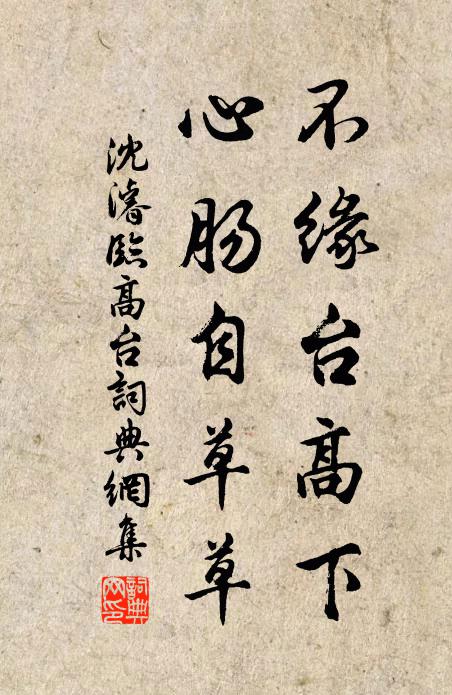 不缘台高下
心肠自草草
沈濬臨高台詞典網集
詞典網印